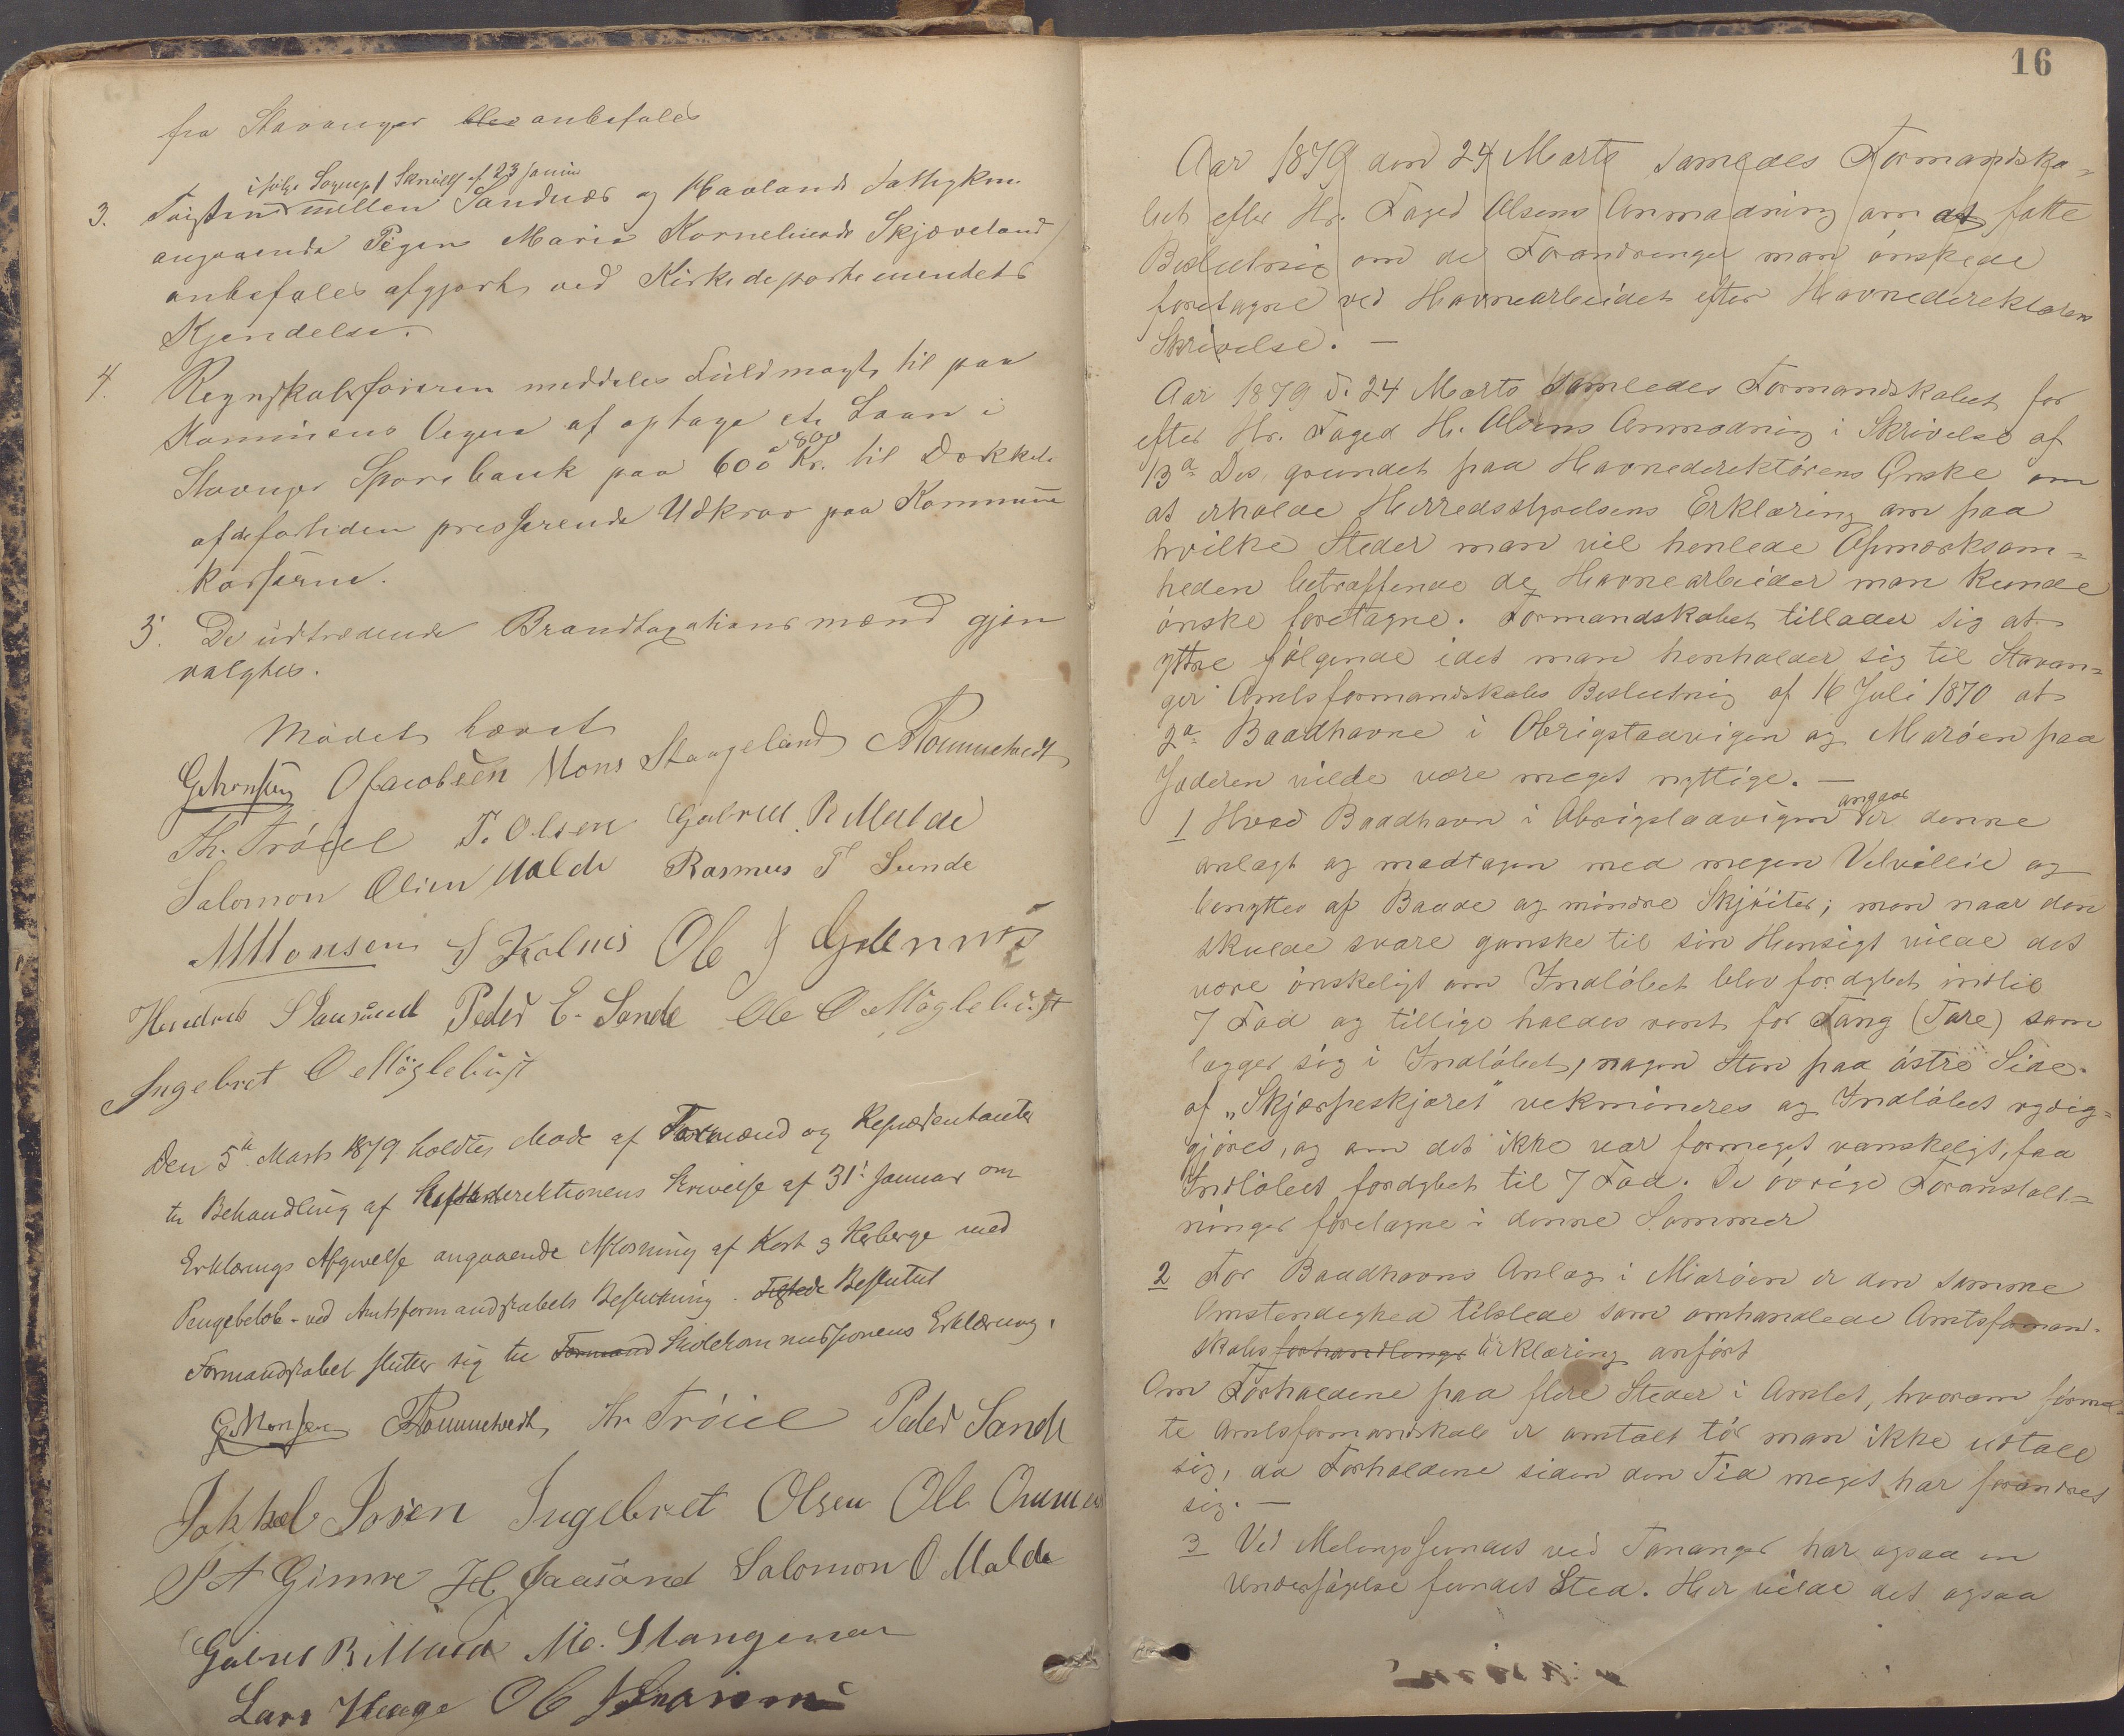 fra Stavanger blev anbefales
ifølge Sogнep Skrivelse af 23 Januar
3. Tvisten mellem Sandnæs og Haalands Fattigkom.
angaaende Pigen Maria Kornelius Skjæveland
anbefales afgjort ved Kirkedepartementets
Kjendelse.
4. Regnskabsføreren meddeles Fuldmagt til paa
Kommunens Vegne at optage et Laan i
800
Stavanger Sparebank paa 600 Kr. til Dækkelse
af de fortiden presserende Udkrav paa Kommune
kasserne.
5. De udtrædende Brandtaxationsmænd gjen
valgtes.
Mødet hævet
G. Monsen O Jacobsen Mons Stangeland Tommetvedt
Th. Tröiel T. Olsen Gabriel R Malde
Salomon Olsen Malde Rasmus T Sunde
M Monsen Kolnes Ole J Grannes
Hendrik Jaasund Peder E. Sande Ole O Møglebust
Ingebret O Møglebust
Den 5te Marts 1879 holdtes Møde af Formænd og Repræsentanter
til Behandling af Skoledirektionens Skrivelse af 31. Januar om
Erklærings Afgivelse angaaende Afløsning af Kost & Herberge med
Pengebeløb - ved Amtsformandskabets Beslutning. Besluttet
Formandskabet slutter sig til Formand Skolekommissionens Erklæring.
G. Monsen Tommetvedt Th Tröiel Peder Sande
Jakkob Soren Ingebret Olsen Ole
P A Gimre H Jaasund Salomon O Malde
Gabriel R Malde Mo. Stangeland
Lars Hauge Ole J Grannes
16
Aar 1879 den 24 Marts samledes Formandska=
bet efter Hr. Foged Olsens Anmodning om at fatte
Beslutning om de Forandringer man önskede
foretagne ved Havnearbeidet efter Havnedirektørens
Skrivelse. —
Aar 1879 d. 24 Marts samledes Formandskabet for
efter Hr. Foged H. Olsens Anmodning i Skrivelse af
13de Ds. grundet paa Havnedirektörens Önske om
at erholde Herredsstyrelsens Erklæring om paa
hvilke Steder man vil henlede Opmærksom=
heden betræffende de Havnearbeider man kunde
önske foretagne. Formandskabet tillader sig at
yttre fölgende idet man henholder sig til Stavan=
ger Amtsformandskabs Beslutning af 16 Juli 1870 at
2de Baadhavne i Obrigstadvigen og Maröen paa
Jæderen vilde være meget nyttige. —
angaar
1 Hvad Baadhavn i Obrigstadvigen er denne
anlagt og modtagen med megen Velvillie og
benyttes af Baade og mindre Skjöiter; men naar den
skulde svare ganske til sin Hensigt vilde det
være önskeligt om Indlöbet blev fordybet indtil
7 Fod og tillige holdes rent for Tang (Tare) som
lægger sig i Indlöbet, nogen Sten paa östre Side
af „Skjærpeskjæret" vekmineres og Indlöbet rydig=
gjöres, og om det ikke var formeget vanskeligt, faa
Indlöbet fordybet til 7 Fod. De övrige Foranstalt=
ninger foretagne i denne Sommer
2 For Baadhavns Anlæg i Maröen er den samme
Omstendighed tilstede som omhandlede Amtsformand-
skabs forhandlings Erklæring anfört
Om Forholdene paa flere Steder i Amtet, hvorom förmel=
te Amtsformandskab er omtalt tör man ikke udtale
sig, da Forholdene siden den Tid meget har forandret
sig. —
3 Ved Melingssundet ved Tananger har ogsaa en
Undersögelse fundet Sted. Her vilde det ogsaa